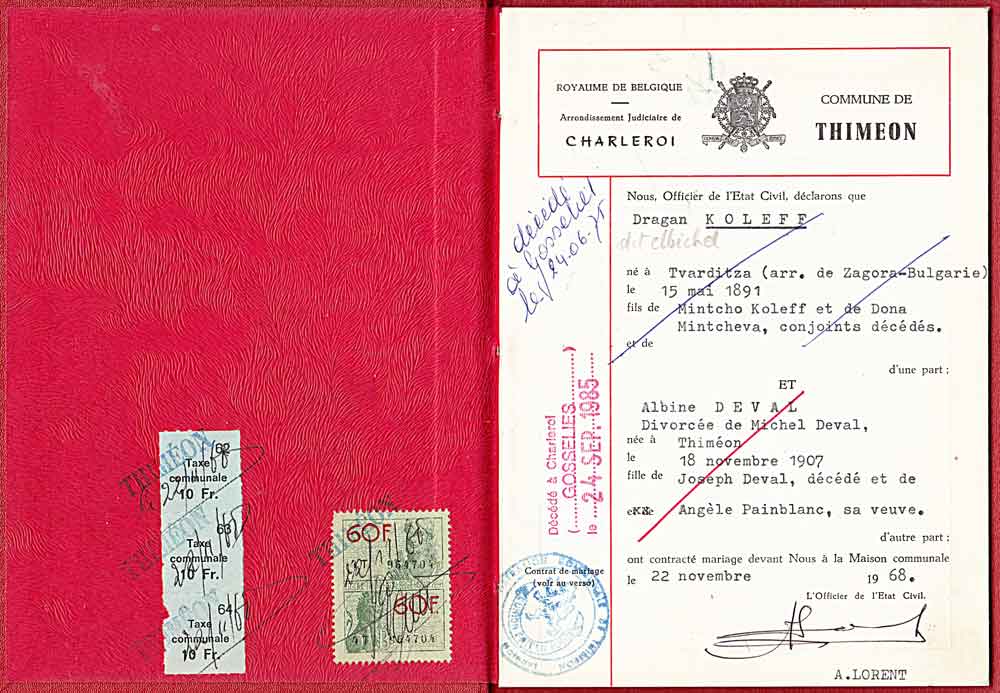 THIMÉON
62
Taxe
communale
10 Fr.
63
Taxe
communale
10 Fr.
64
Taxe
communale
10 Fr.
60F
964704
60F
964704
ROYAUME DE BELGIQUE
Arrondissement Judiciaire de
CHARLEROI
COMMUNE DE
THIMEON
Nous, Officier de l'Etat Civil, déclarons que
Dragan KOLEFF
né à Tvarditza (arr. de Zagora-Bulgarie)
le 15 mai 1891
fils de Mintcho Koleff et de Dona
Mintcheva, conjoints décédés.
et de
d'une part ;
ET
Albine DEVAL
Divorcée de Michel Deval,
née à Thiméon
le 18 novembre 1907
fille de Joseph Deval, décédé et de
Angèle Painblanc, sa veuve.
d'autre part :
ont contracté mariage devant Nous à la Maison communale
le 22 novembre 1968.
L'Officier de l'Etat Civil.
A.LORENT
décédé
à Gosselies
le 24-06-75
Décédé à Charleroi
(....GOSSELIES....)
le ...24 SEP. 1985
Contrat de mariage
(voir au verso)